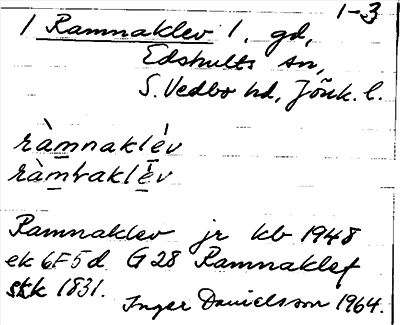 1-3
1 Ramnaklev 1. gd,
Edshults sn,
S. Vedbo hd, Jönk. l.
ràmnaklév
ràmvaklév
Ramnaklev jr kb 1948
ek 6F5d G28 Ramnaklef
skk 1831. Inger Danielsson 1964.